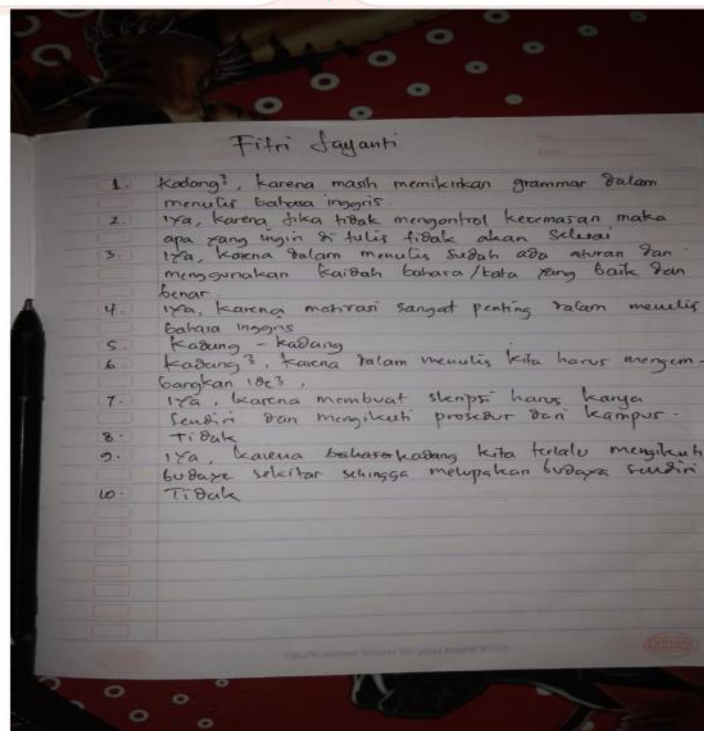 Fitri Jayanti
1. Kadang², karena masih memikirkan grammar dalam
menulis bahasa inggris
2. iya, karena jika tidak mengontrol kecemasan maka
apa yang ingin di tulis tidak akan selesai
3. iya, karena dalam menulis sudah ada aturan dan
menggunakan kaidah bahasa/kata yang baik dan
benar.
4. iya, karena motivasi sangat penting dalam menulis
bahasa inggris
5. Kadang - kadang
6. Kadang², karena dalam menulis kita harus mengem-
bangkan ide²,
7. iya, karena membuat skripsi harus karya
sendiri dan mengikuti prosedur dari kampus.
8. Tidak
9. iya, karena kadang kita terlalu mengikuti
budaya sekitar sehingga melupakan budaya sendiri
10. Tidak